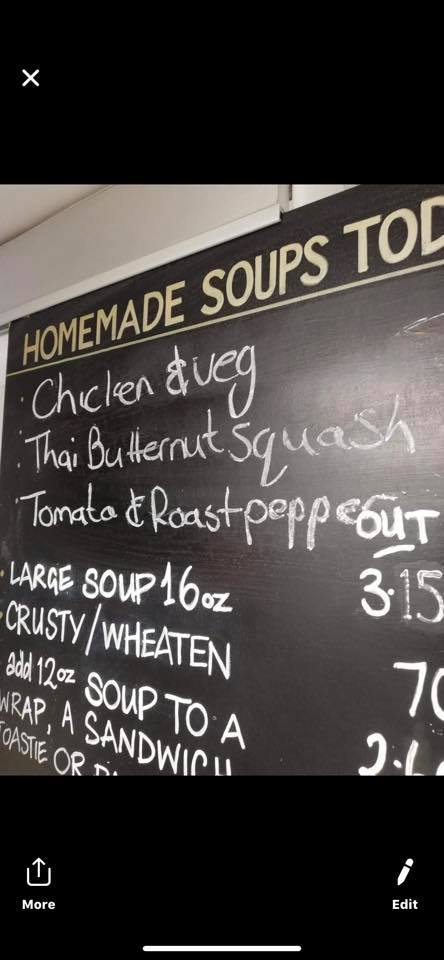 HOMEMADE SOUPS TOD
· Chicken & veg
· Thai Butternut Squash
· Tomato & Roast pepper
OUT
· LARGE SOUP 16oz 3.15
· CRUSTY/WHEATEN 70
add 12oz SOUP TO A 2.6
WRAP, A SANDWICH
TOASTIE OR
More
Edit